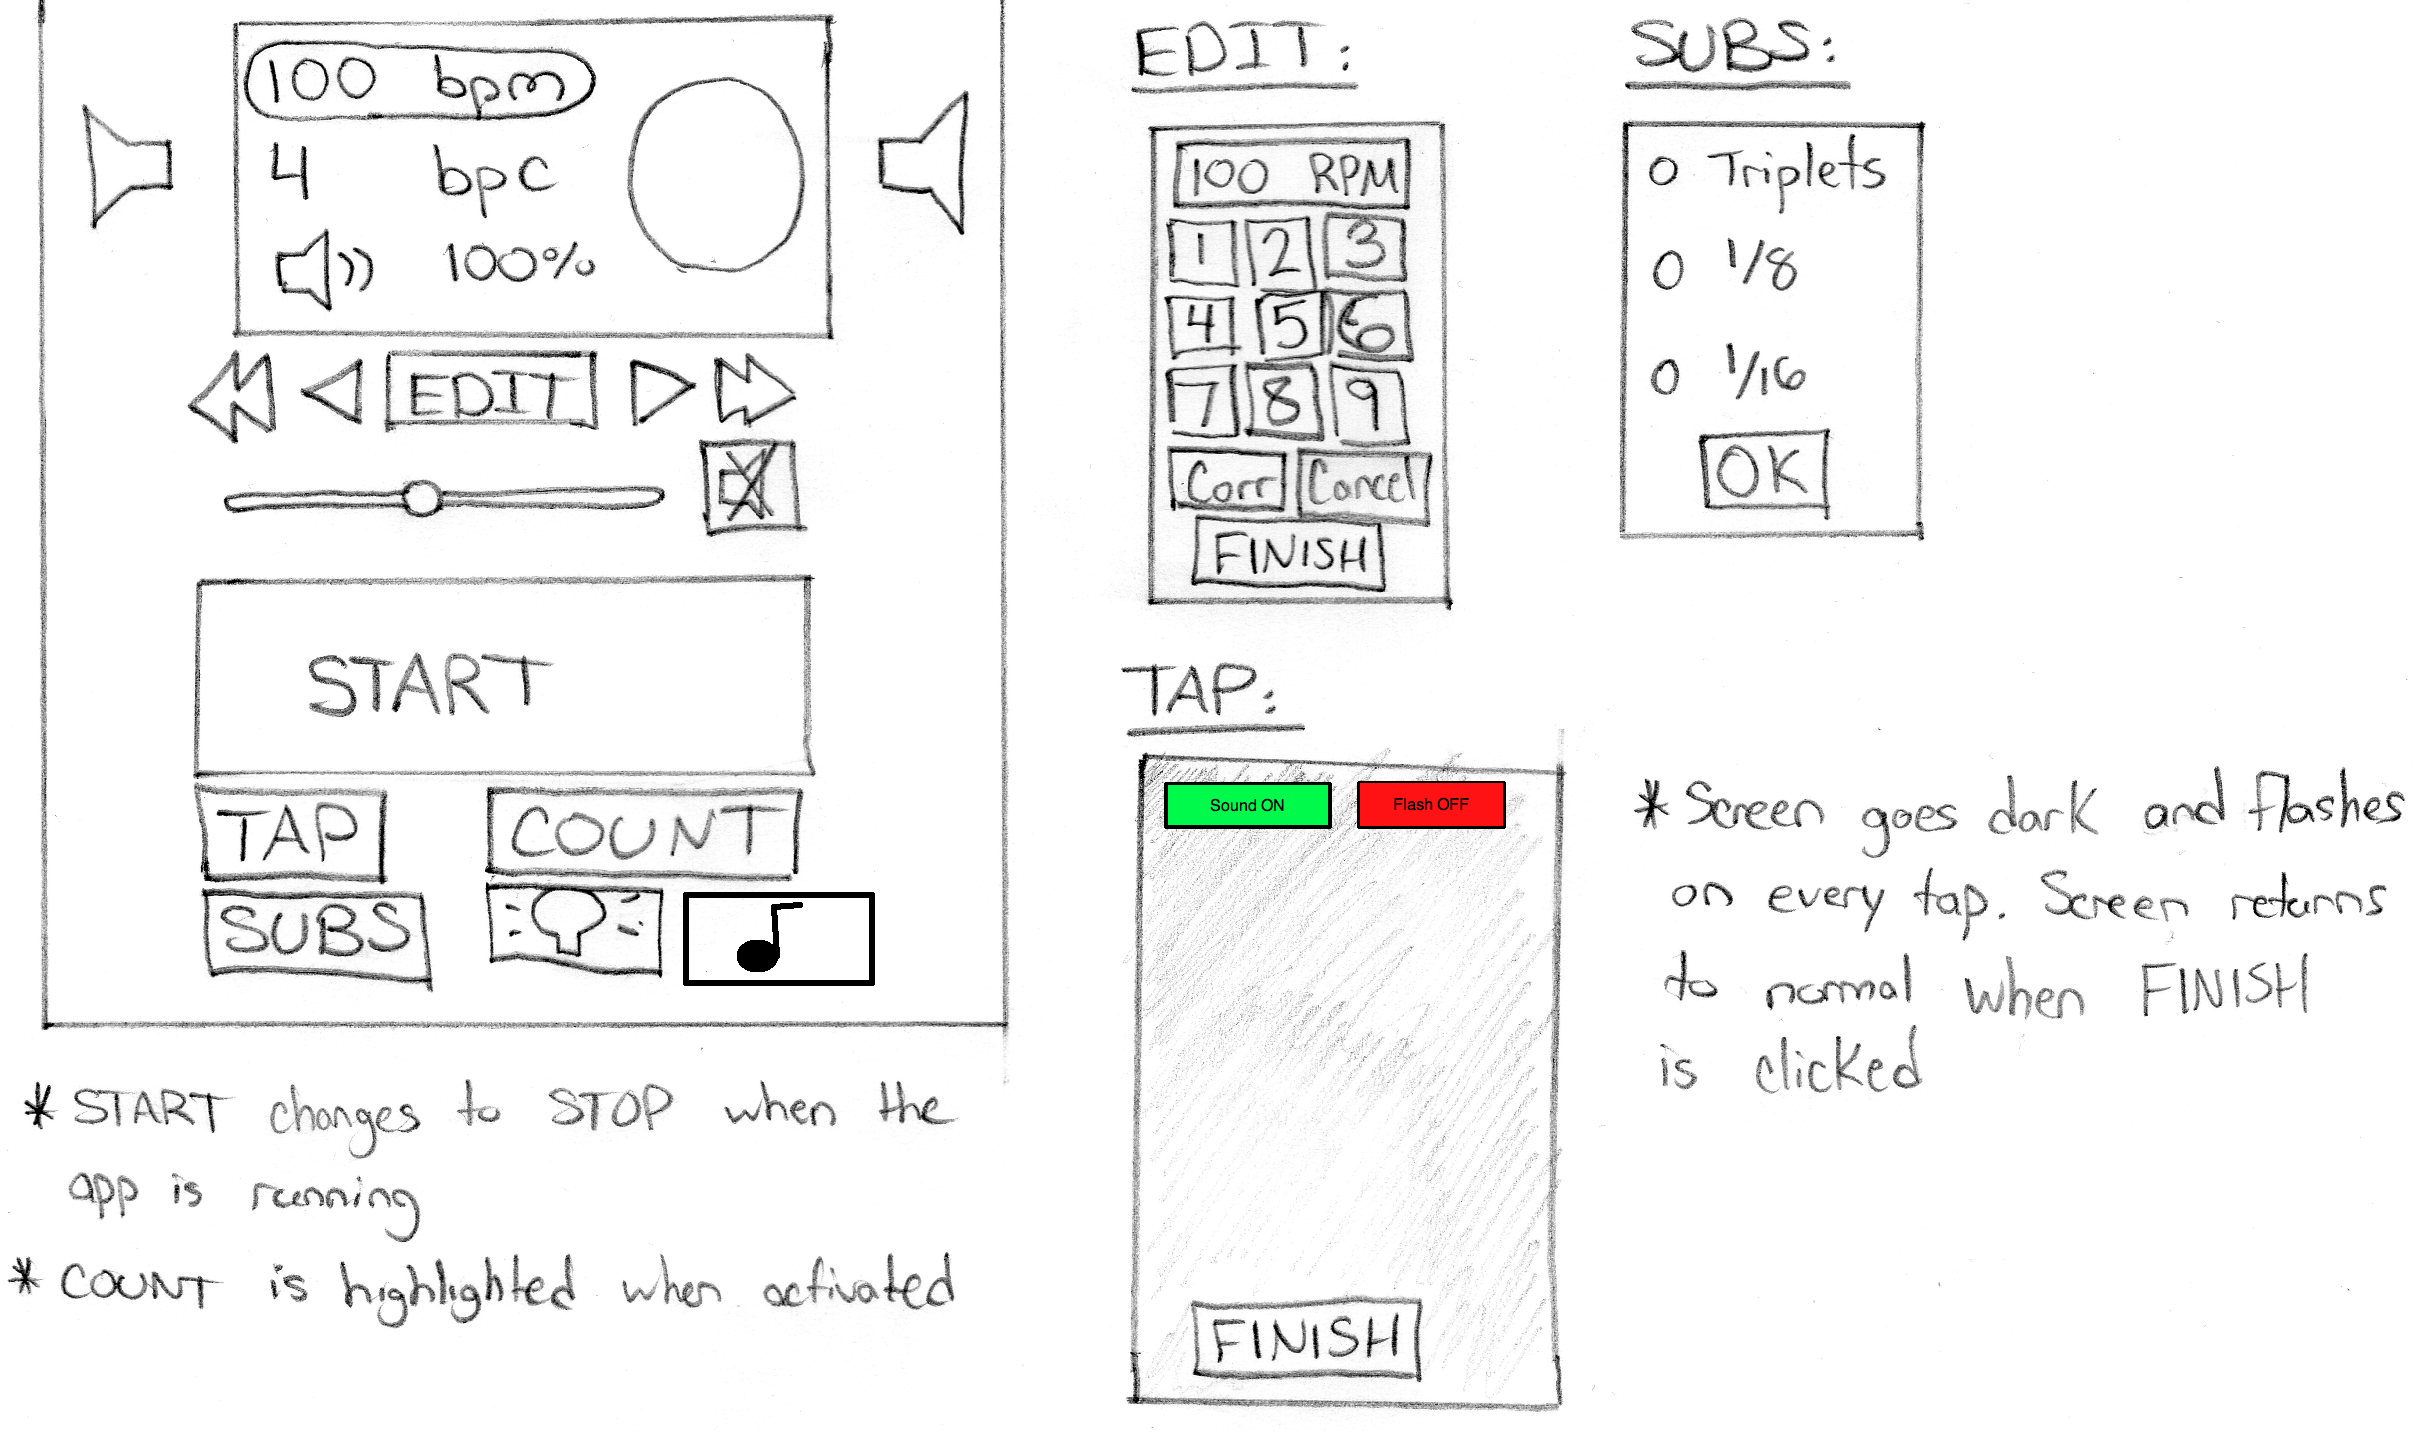 100 bpm
4 bpc
100%
EDIT
START
TAP
COUNT
SUBS
* START changes to STOP when the
app is running
* COUNT is highlighted when activated
EDIT:
100 RPM
1 2 3
4 5 6
7 8 9
Corr Cancel
FINISH
SUBS:
Triplets
1/8
1/16
OK
TAP:
Sound ON
Flash OFF
FINISH
* Screen goes dark and flashes
on every tap. Screen returns
to normal when FINISH
is clicked